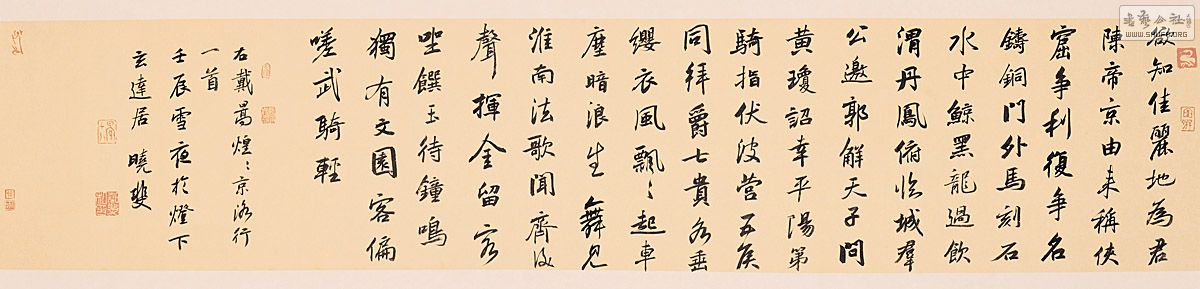 欲知佳麗地為君
陳帝京由来稱俠
窟爭利復爭名
鑄銅門外馬刻石
水中鯨黑龍過飲
渭丹鳳俯臨城群
公邀郭解天子問
黃瓊詔幸平陽第
騎指伏波營五侯
同拜爵七貴各垂
纓衣風飄〻起車
塵暗浪生舞見
淮南法歌聞齊後
聲揮金留客
坐饌玉待鐘鳴
獨有文園客偏
嗟武騎輕
右戴暠煌〻京洛行
一首
壬辰雪夜於燈下
玄達居 曉
书艺公社
WWW.SHUFA.ORG